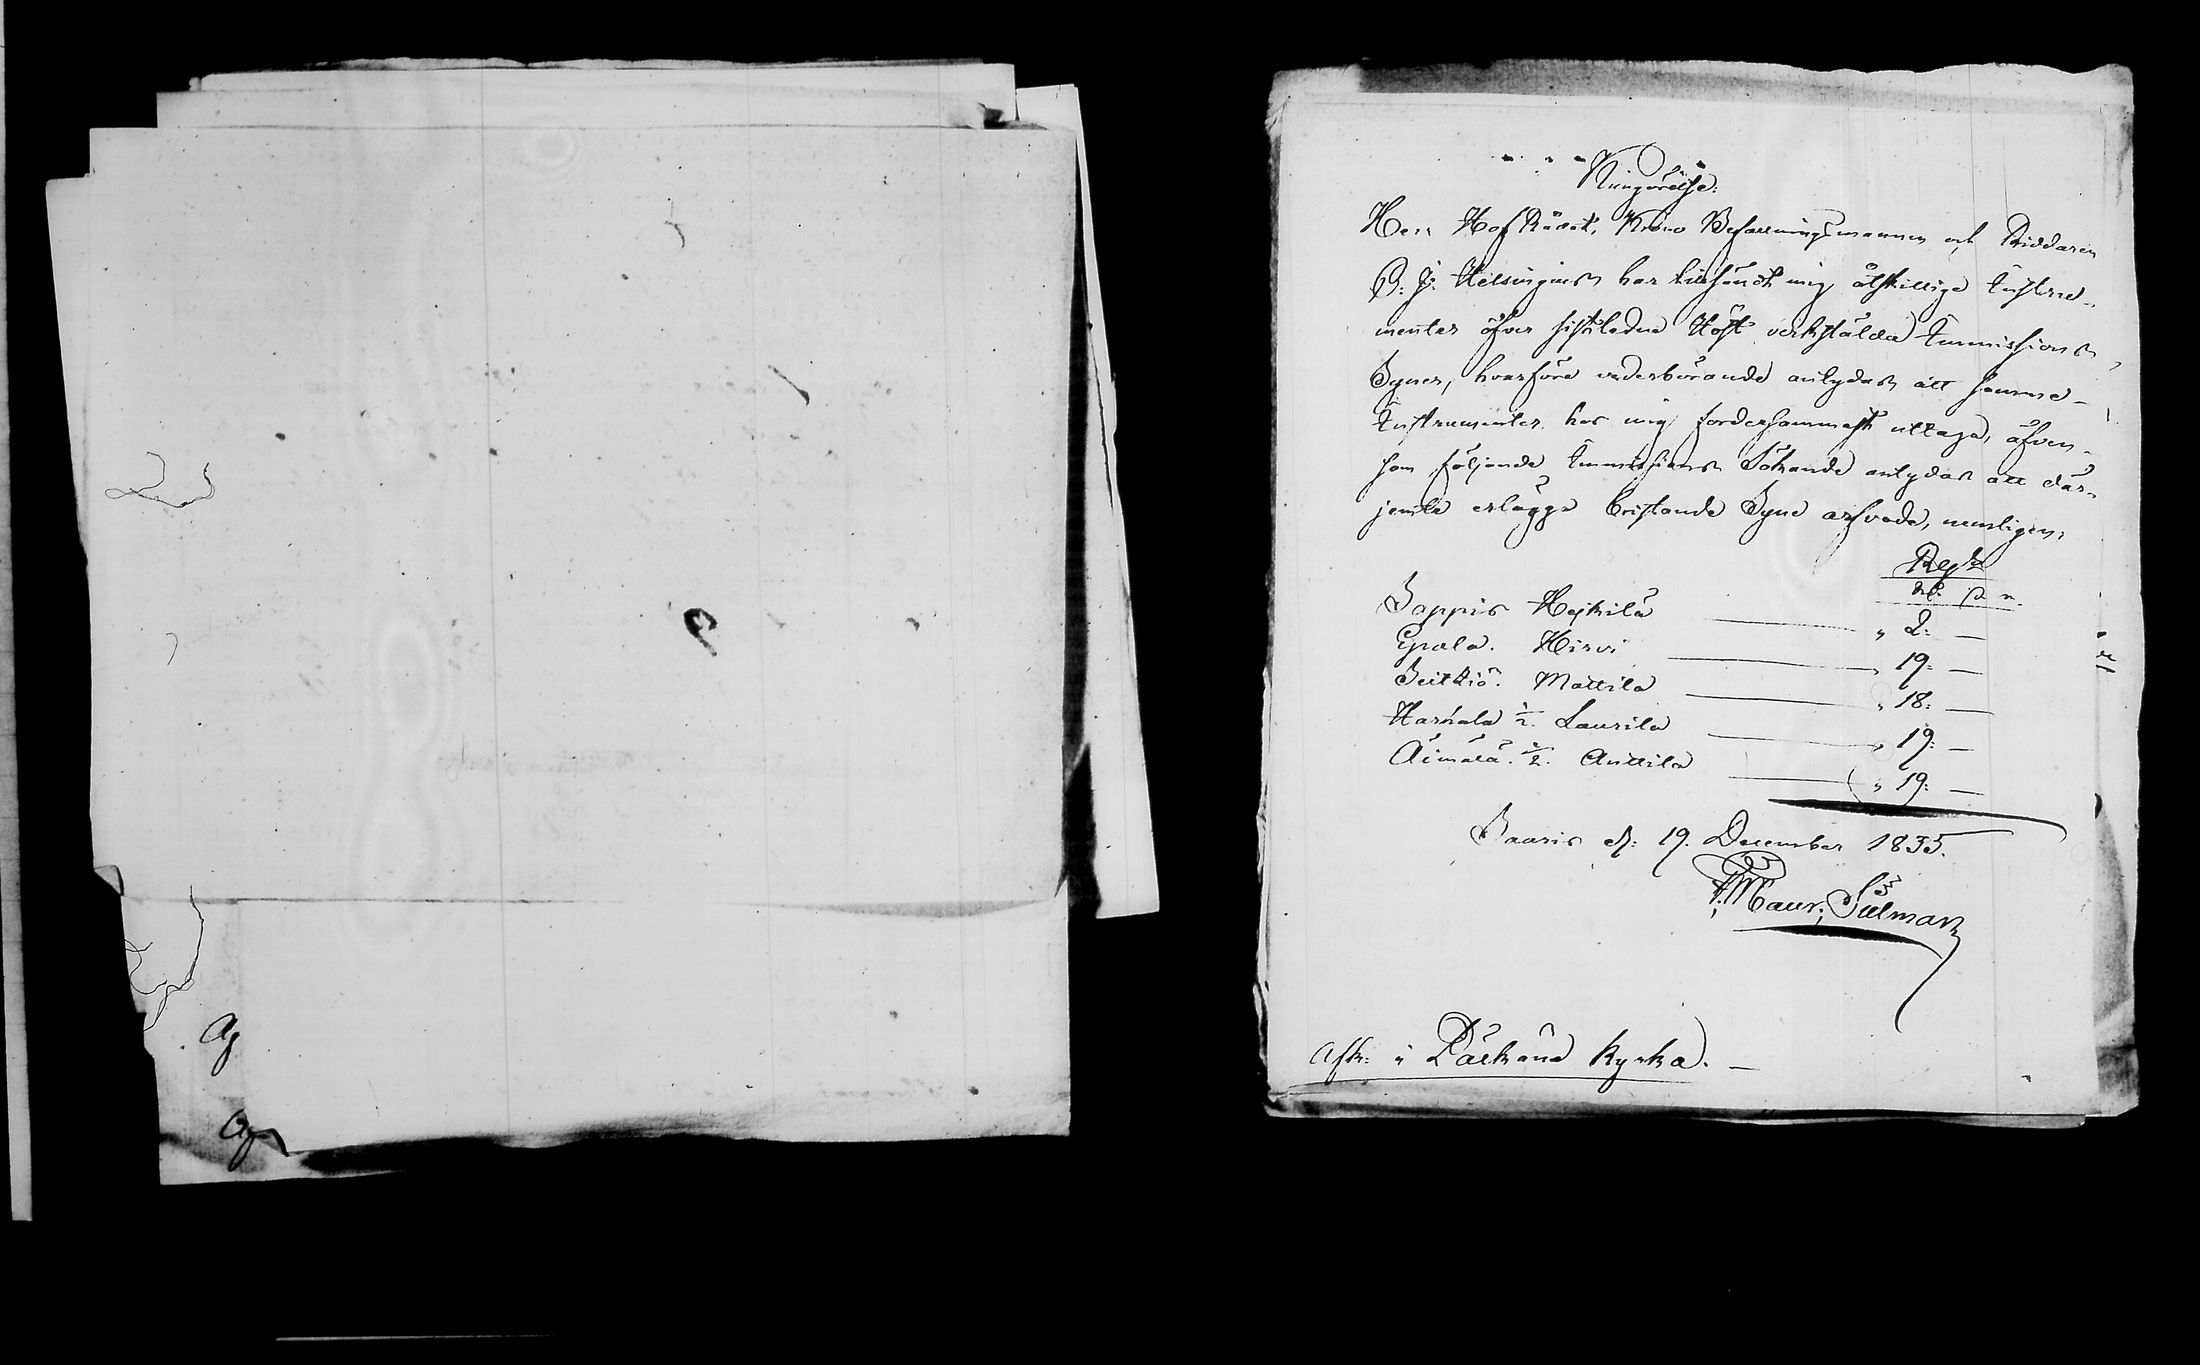 Kungörelse.
Herr HofRådet, Krono Befallningsmannen och Riddaren
O: J: Helsingius har tillsändt mig åtskillige Instru-
menter öfver sistledne Höst verkstälda Immissions
Syner, hvarföre vederbörande anlydas att samme
Instrumenter hos mig fordersammast uttaga, äfven-
som följande Immissions Sökande anlydas att där-
jemte erlägga bristande Syne arfvode, nemligen,
Rbl
Sappis Hejkilä „ 2: —
Epala. Hirvi „ 19: —
Suttiö. Mattila „ 18: —
Harhala 1/2. Laurila „ 19: —
Äimälä. 1/2. Anttila „ 19: —
Saaris d: 19. December 1835.
Maur: Silman
Afk: i Pälkäne kyrka. —
Af
Af